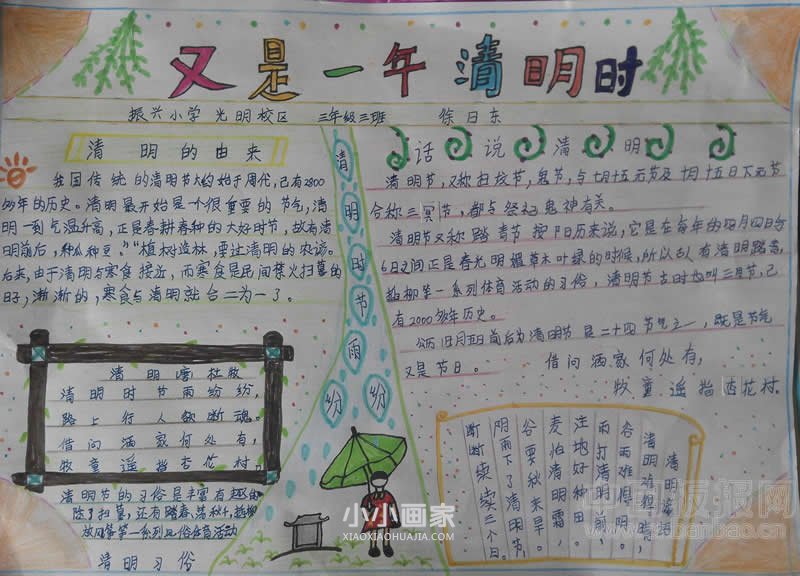 又是一年清明时
振兴小学 光明校区 三年级三班 徐日东
清明的由来
我国传统的清明节大约始于周代,已有2800
多年的历史。清明最开始是一个很重要的节气,清
明一到气温升高,正是春耕春种的大好时节,故有清
明前后,种瓜种豆。”“植树造林,莫过清明的农谚。
后来,由于清明与寒食接近,而寒食是民间禁火扫墓的
日子,渐渐的,寒食与清明就合二为一了。
清明 杜牧
清明时节雨纷纷,
路上行人欲断魂,
借问酒家何处有,
牧童遥指杏花村。
清明节的习俗是丰富有趣的
除了扫墓,还有踏春、荡秋千,
放风筝等一系列
清明习俗
清明时节雨纷纷
话说清明
清明节,又称扫坟节,鬼节,与七月十五元节及十月十五日下元节
合称三冥节,都与祭祀鬼神有关。
清明节又称踏青节 按阳历来说,它是在每年的四月四日
6日之间正是春光明媚草木叶绿的时候,所以古人有清明踏青,
插柳等一系列体育活动的习俗,清明节古时也叫三月节,已
有2000多年历史。
公历四月五日前后为清明节 是二十四节气之一,既是节气
又是节日。
借问酒家何处有,
牧童遥指杏花村。
清明
清明难得晴
谷雨难得明。
雨打清明前,
洼地好种田。
麦怕清明霜,
谷要秋来旱。
明雨下了清明节,
断断续续三个月。
小小画家
XIAOXIAOHUAJIA.COM
中国板报网